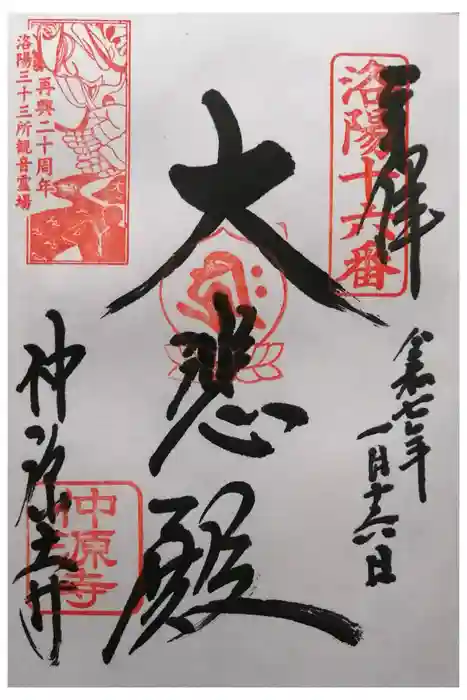 奉拝
洛陽十六番
令和七年
一月十六日
大悲殿
洛陽三十三所観音霊場
再興二十周年
仲源寺
中原寺